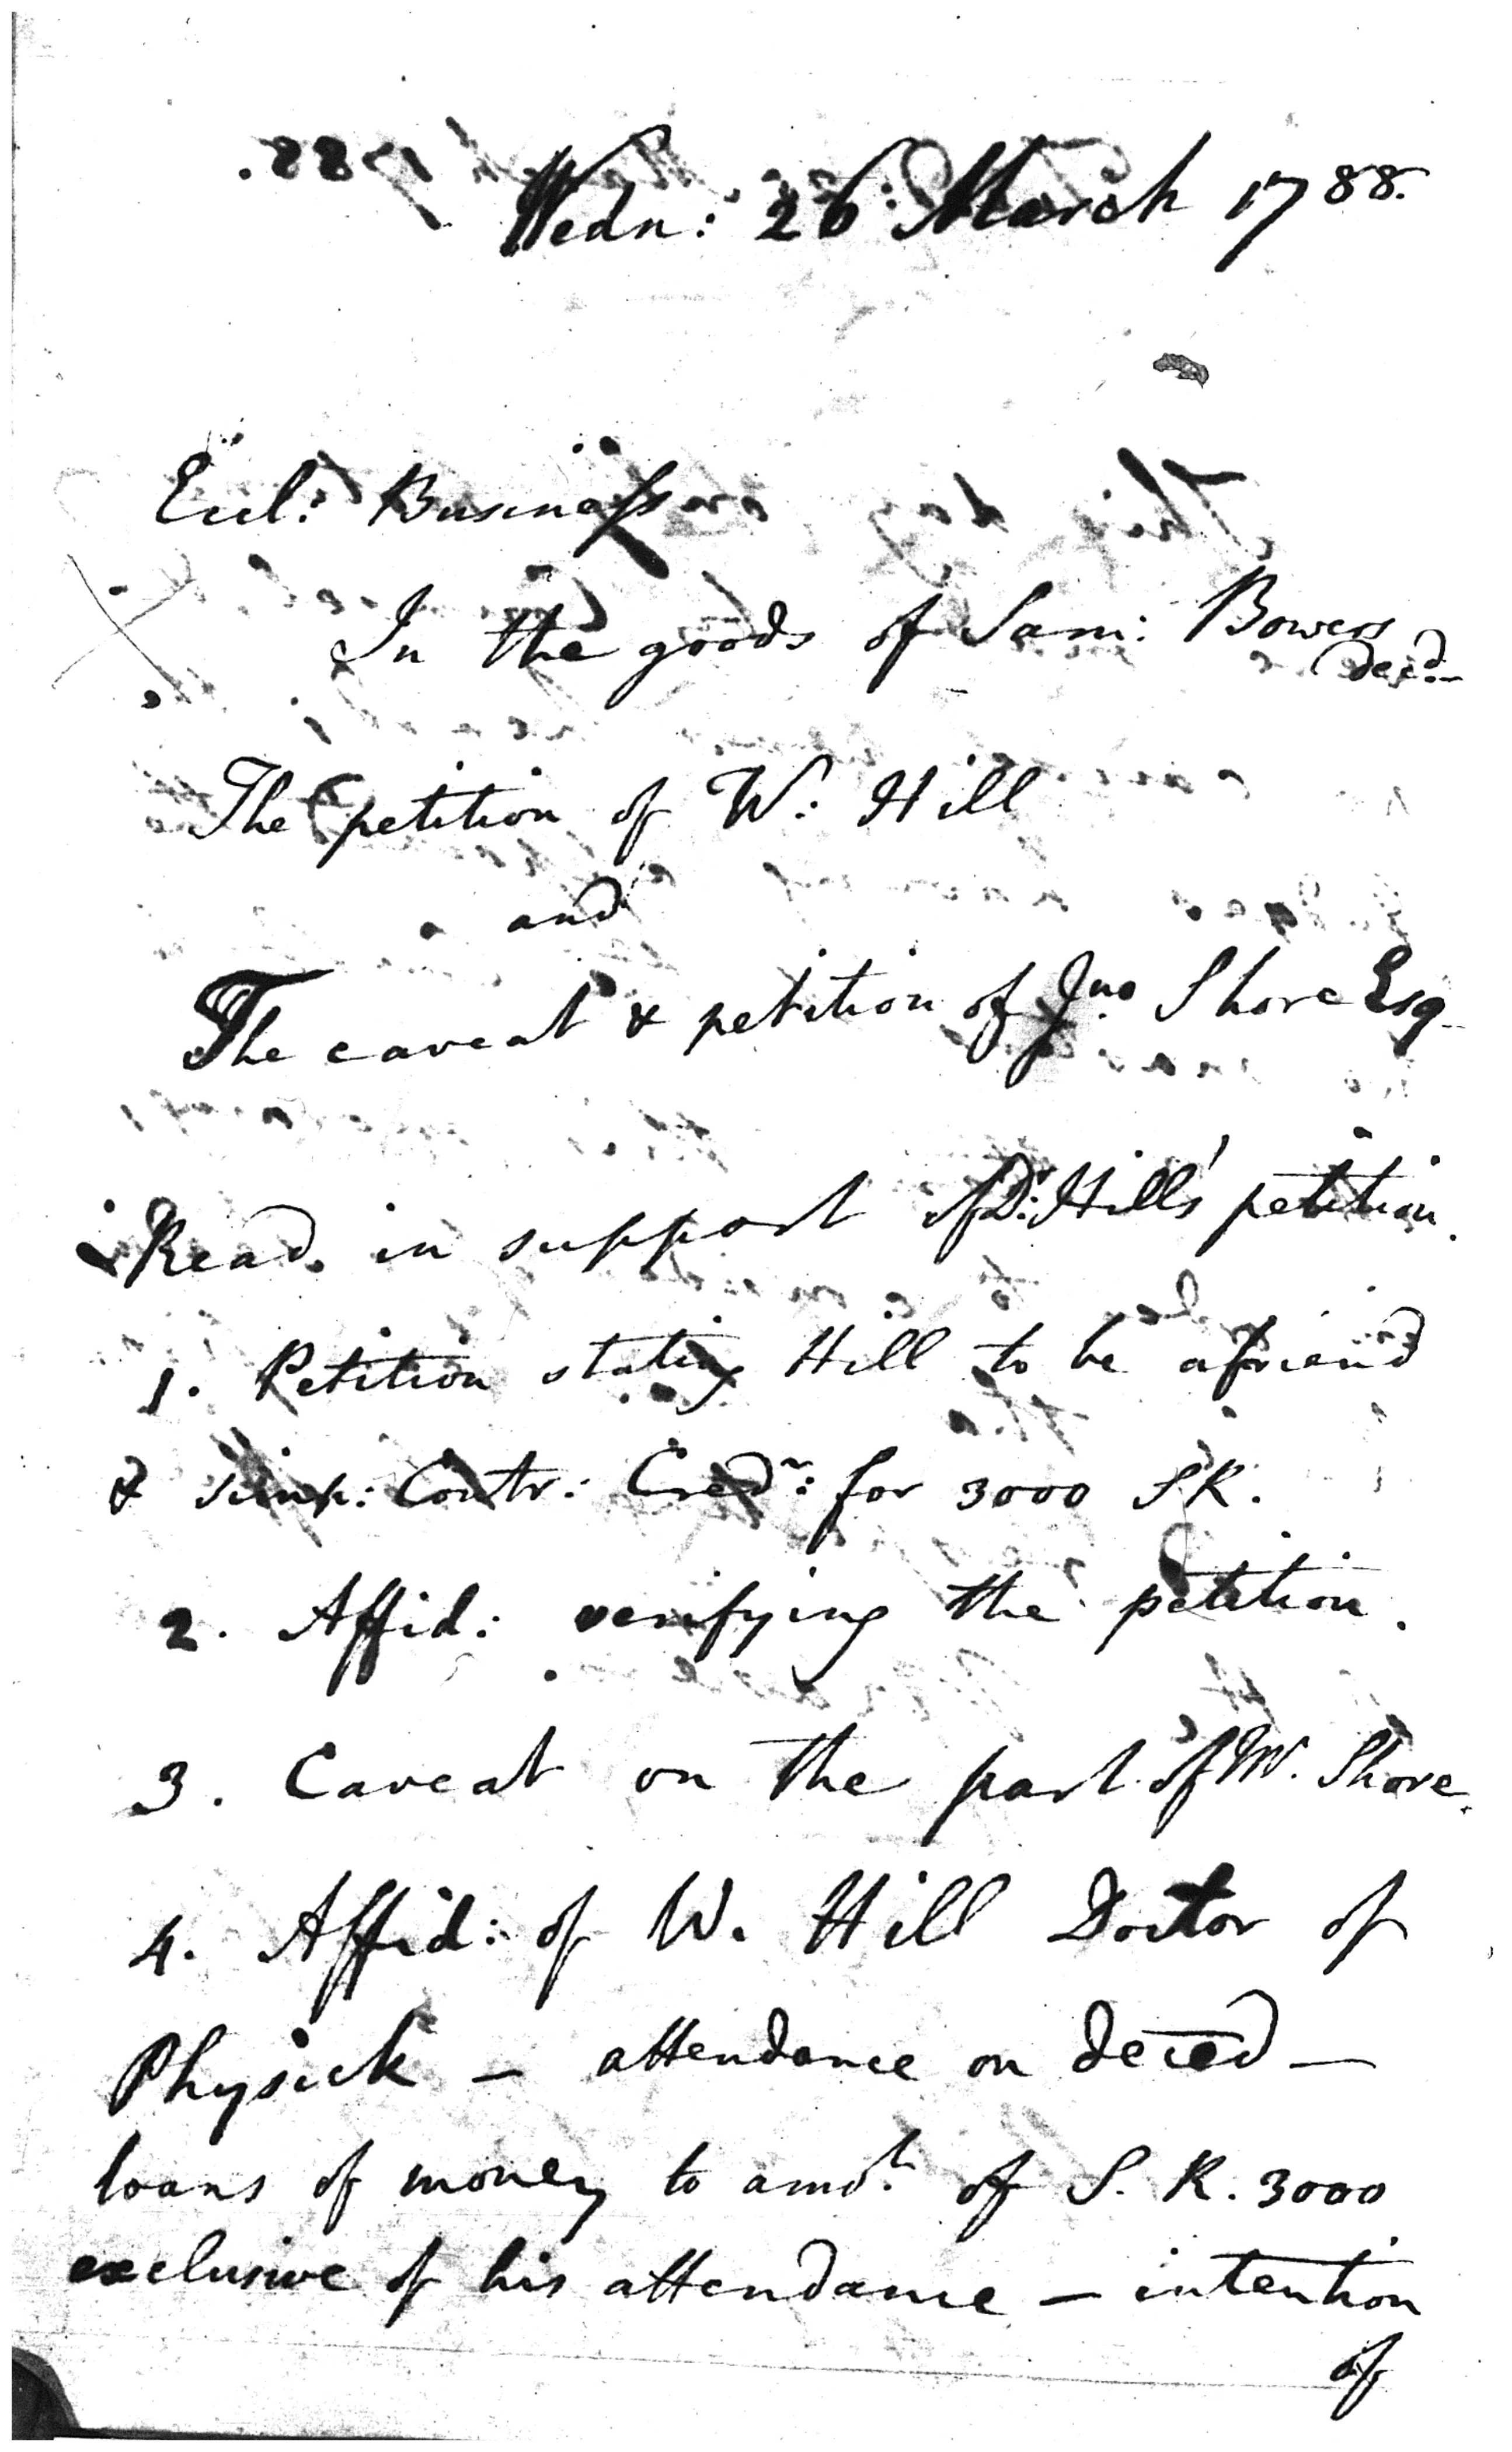 Wedn: 26 March 1788.
Eccl: Business
In the goods of Sam: Bowers
decd.
The petition of W: Hill
and
The caveat & petition of Jno Shore Esq
Read in support of Dr: Hill's petition.
1. Petition stating Hill to be a friend
& simp: Contr: Credr: for 3000 SR.
2. Affid: verifying the petition.
3. Caveat on the part of Mr. Shore.
4. Affid: of W. Hill Doctor of
Physick – attendance on deced –
loans of money to amot. of S. R. 3000
exclusive of his attendance – intention
of